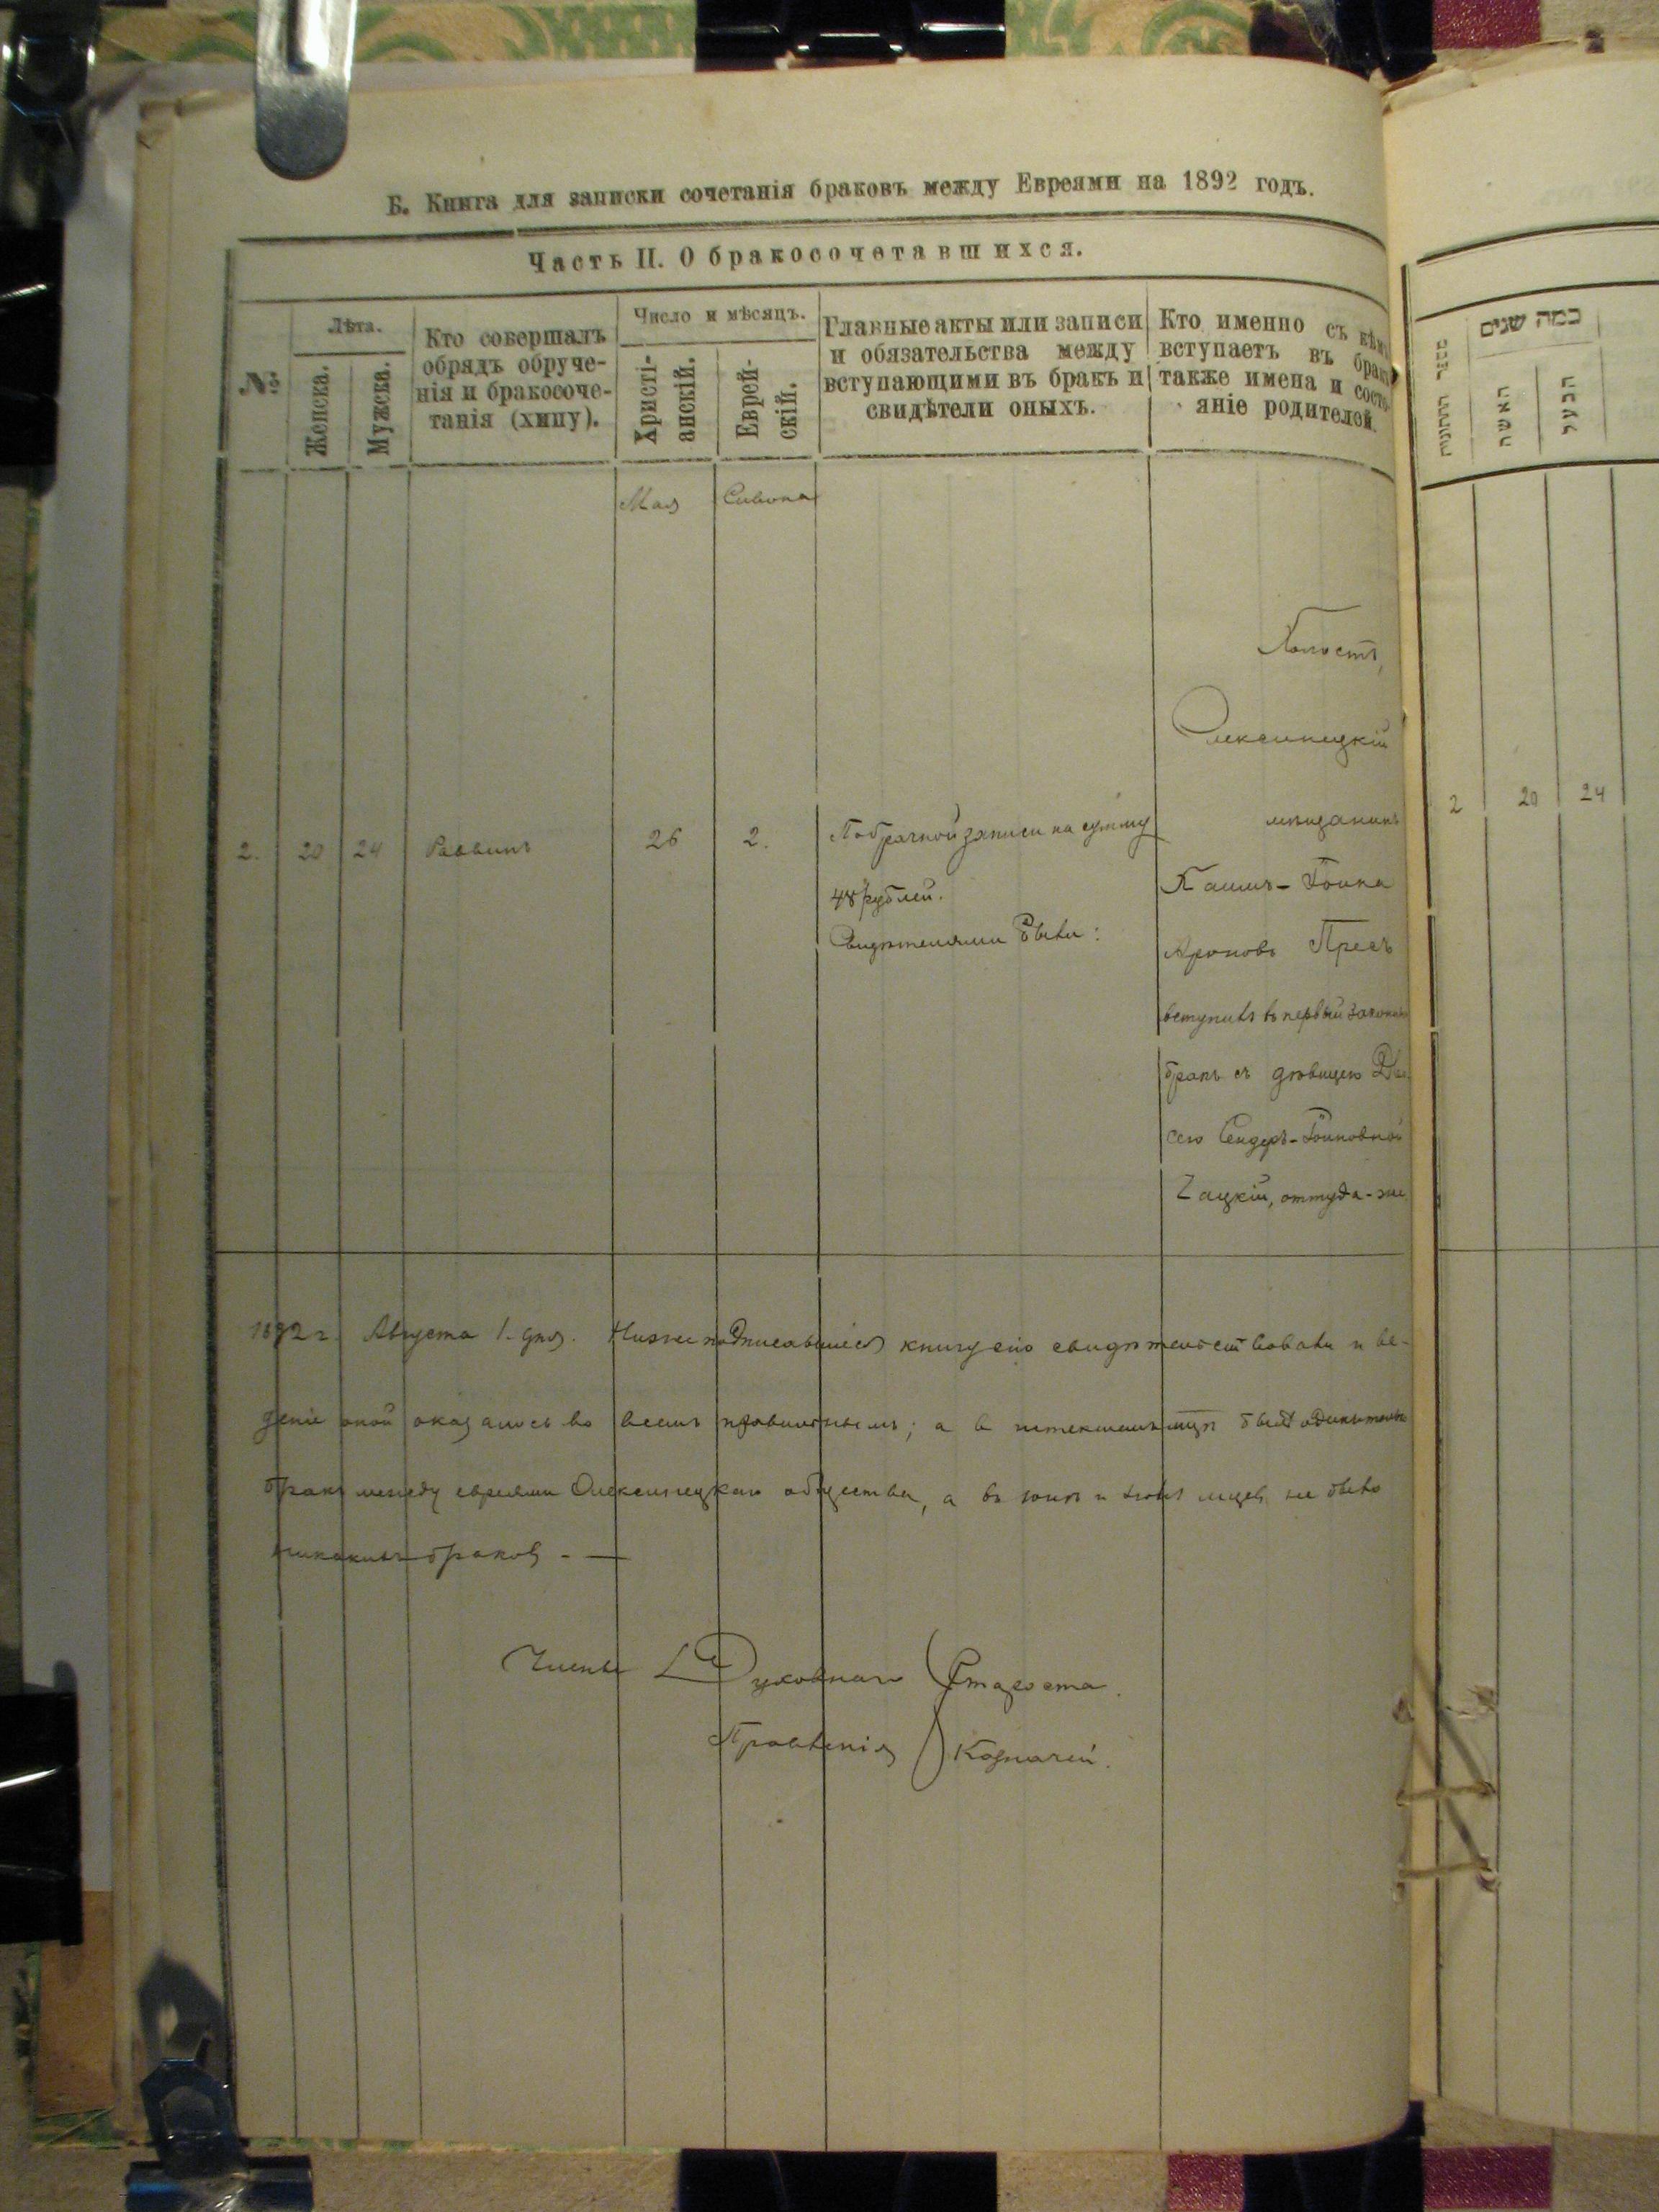 Б. Книга для записки сочетанія браковъ между Евреями на 1892 годъ.
Часть II. О бракосочетавшихся.
№
Лѣта.
Женска.
Мужска.
Кто совершалъ
обрядъ обруче-
нія и бракосоче-
танія (хипу).
Число и мѣсяцъ.
Христі-
анскій.
Еврей-
скій.
Главные акты или записи
и обязательства между
вступающими въ бракъ и
свидѣтели оныхъ.
Кто именно съ кѣмъ
вступаетъ въ бракъ
также имена и состо-
яніе родителей.
Мая
Сивона
2.
20
24
Раввинъ
26
2.
По брачной записи на сумму
48 рублей.
Свидѣтелями были:
Холостъ,
Олексинецкій
мѣщанинъ
Ароновъ Пресъ
вступилъ въ первый законный
бракъ съ дѣвицею
сею Сендеръ-
Чацкій, оттуда-же
1892 г. Августа 1. дня. Нижеподписавшіеся книгу сію свидѣтельствовали и ве-
деніе оной оказалось во всемъ правильнымъ; а въ истекшемъ былъ одинъ только
бракъ между евреями Олексинецкаго общества, а въ юнѣ и юлѣ мцевъ не было
никакихъ браковъ. —
Члены Духовнаго Староста.
Правленія Казначей.
מספר החתונות
כמה שנים
האשה
הבעל
2
20
24